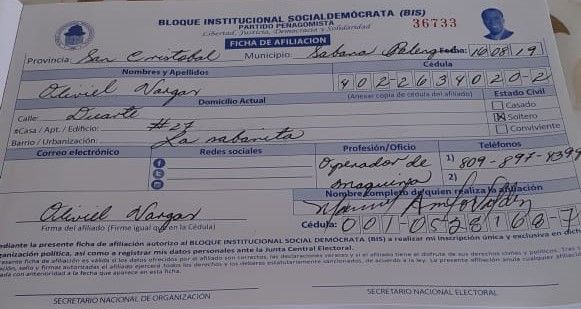 BLOQUE INSTITUCIONAL SOCIALDEMÓCRATA (BIS)
PARTIDO PEÑAGOMISTA
Libertad, Justicia, Democracia y Solidaridad
36733
FICHA DE AFILIACION
Provincia: San Cristobal Municipio: Sabana Fecha: 16/08/19
Nombres y Apellidos Cédula
Oliviel Vargas 402-2634020-2
Domicilio Actual (Anexar copia de cédula del afiliado) Estado Civil
Calle: Duarte Casado
#Casa / Apt. / Edificio: #27 Soltero
Barrio / Urbanización: La sabanita Conviviente
Correo electrónico Redes sociales Profesión/Oficio Teléfonos
Operador de 1) 809-897-4399
maquina 2)
Nombre completo de quien realiza la afiliación
Oliviel Vargas Manuel
Firma del afiliado (Firme igual que en la Cédula) Cédula: 001-0528168-7
mediante la presente ficha de afiliación autorizo al BLOQUE INSTITUCIONAL SOCIAL DEMÓCRATA (BIS) a realizar mi inscripción única y exclusiva en dicha
organización política, así como a registrar mis datos personales ante la Junta Central Electoral.
SECRETARIO NACIONAL DE ORGANIZACIÓN SECRETARIO NACIONAL ELECTORAL